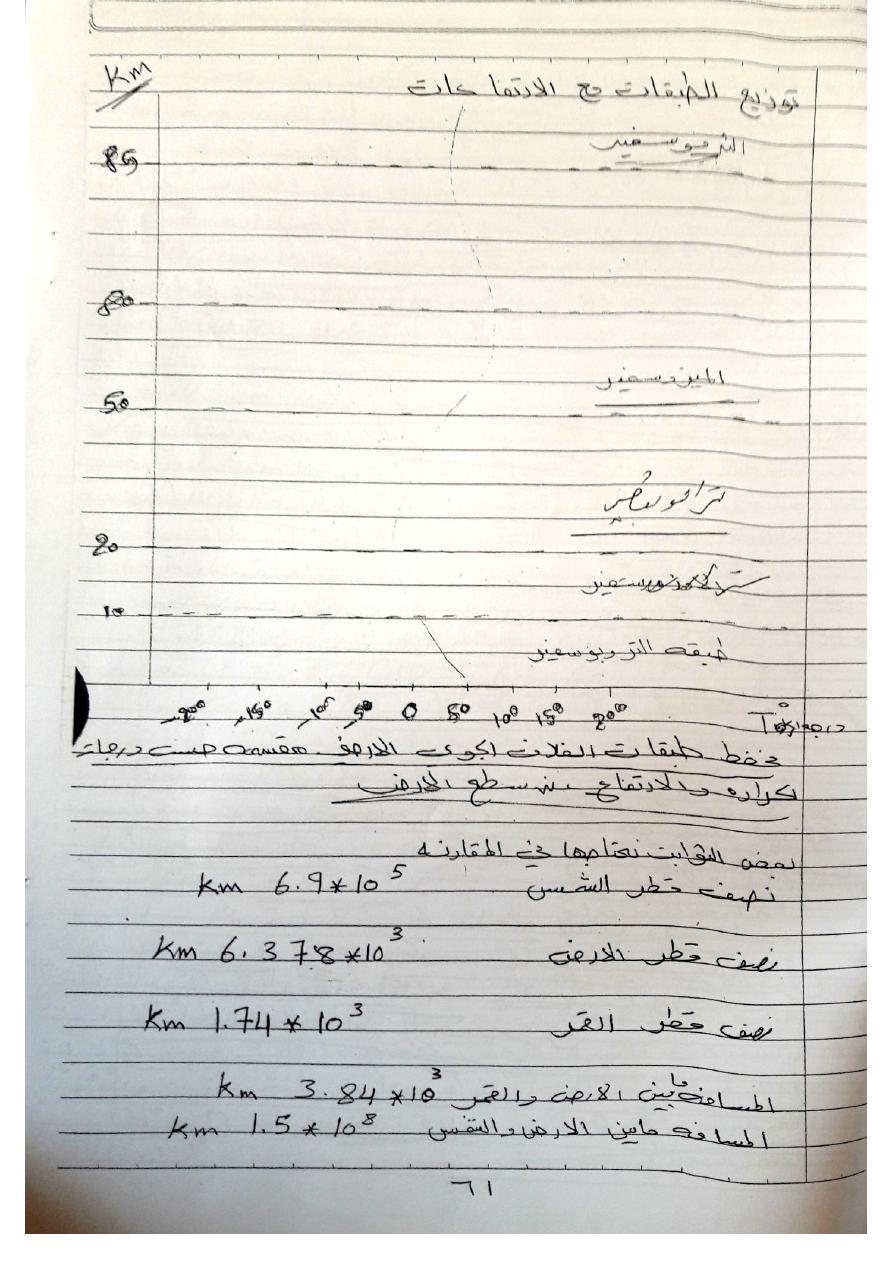 توزيع الطبقات مع الارتفاعات
Km
الثرموسفير
85
80
الميزوسفير
50
20
10
طبقه التروبوسفير
-200 -150 -100 -50 0 50 100 150 200
مخطط طبقات الغلاف الجوي الارضي مقسمه حسب درجات
الحراره والارتفاع عن سطح الارض
بعض الثوابت نحتاجها في المقارنه
نصف قطر الشمس 6.9*10^5 Km
نصف قطر الارض 6.378*10^3 Km
نصف قطر القمر 1.74*10^3 Km
المسافه مابين الارض والقمر 3.84*10^3 Km
المسافه مابين الارض والشمس 1.5*10^8 Km
61